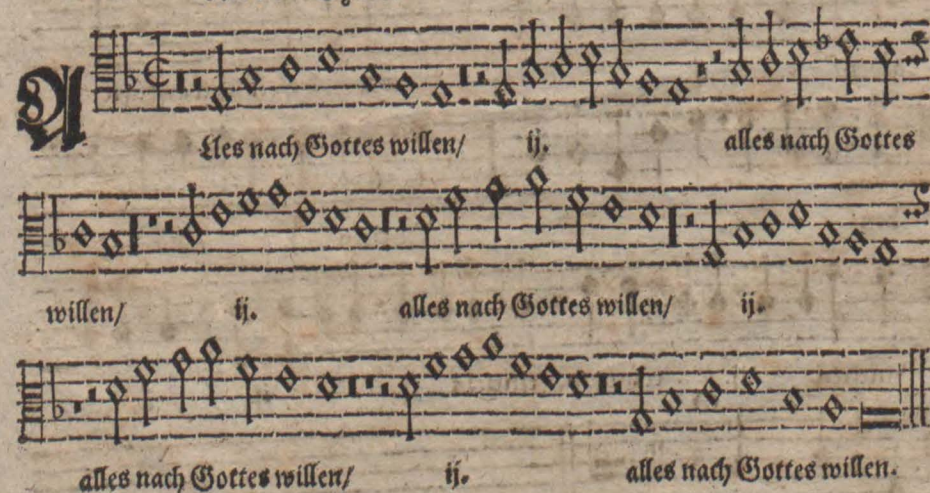 Alles nach Gottes willen/ ij. alles nach Gottes
willen/ ij. alles nach Gottes willen/ ij.
alles nach Gottes willen/ ij. alles nach Gottes willen.